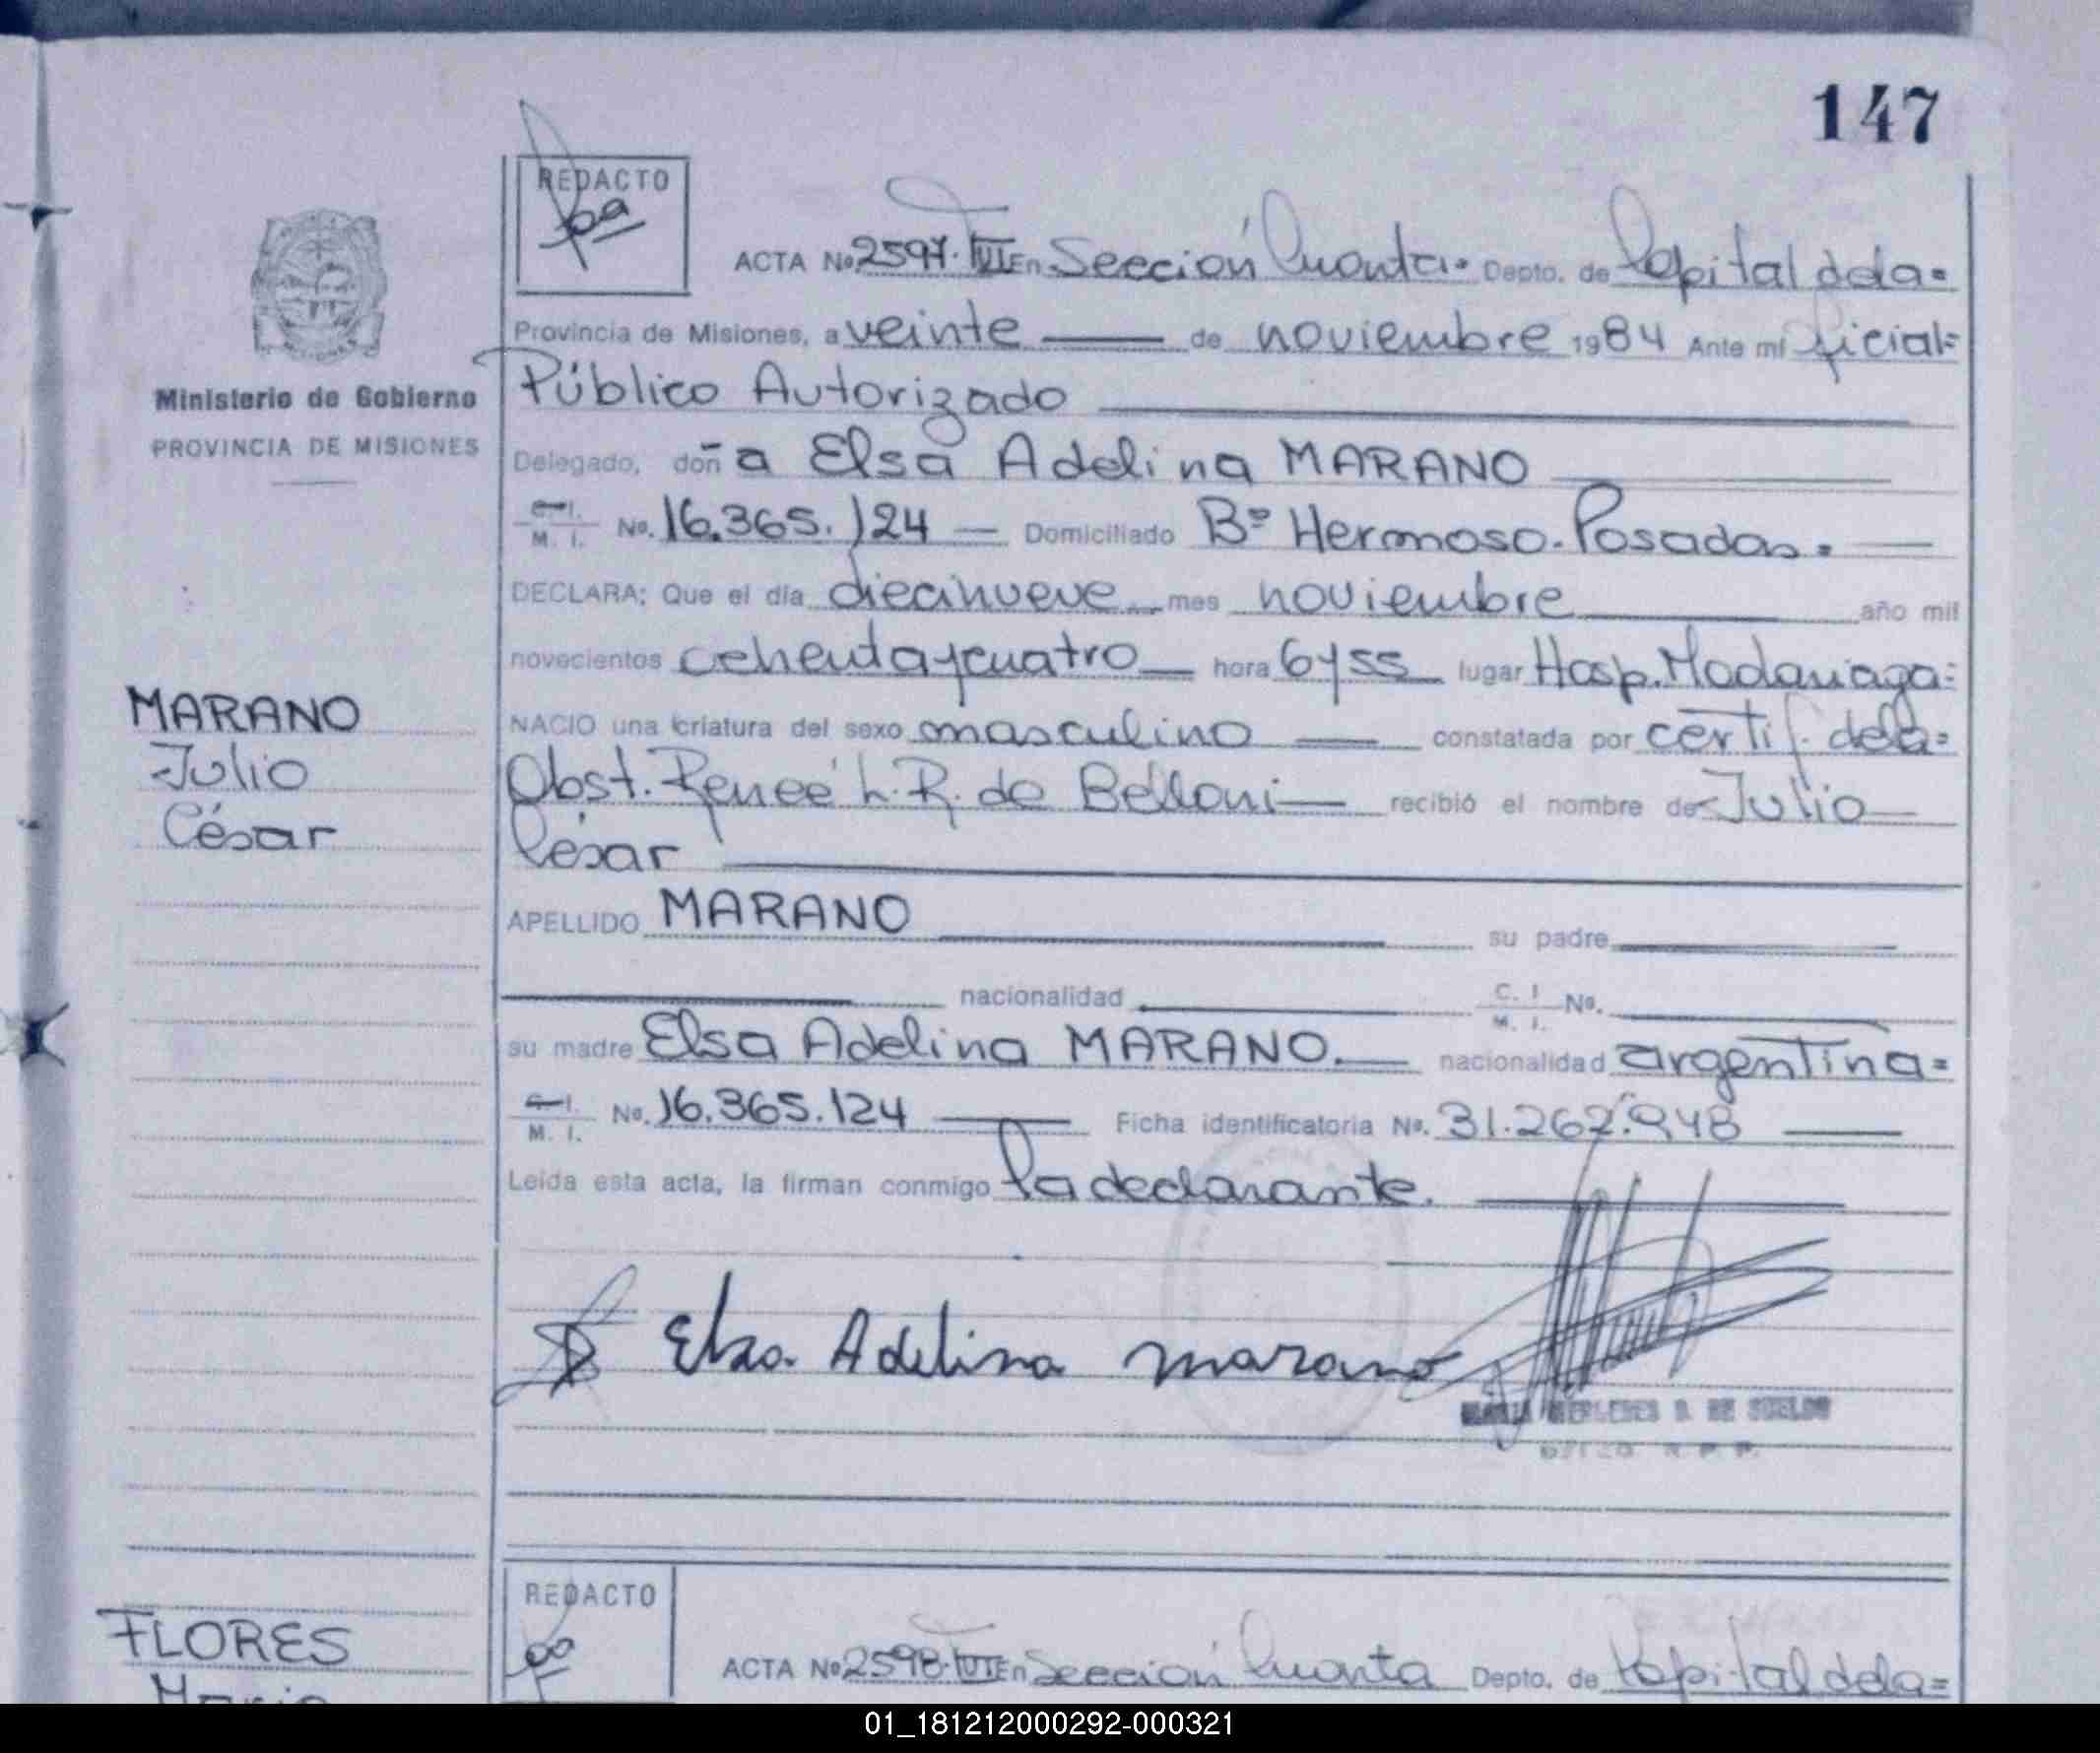 147
REDACTO
ACTA No 2597. T VI En Sección Cuarta. Depto. de Capital dela=
Provincia de Misiones, a veinte de noviembre 1984 Ante mí ficial=
Ministerio de Gobierno
Público Autorizado
PROVINCIA DE MISIONES
Delegado, doñ a Elsa Adelina MARANO
C. I. M. I. No. 16.365.124 Domiciliado Bº Hermoso. Posadas.=
DECLARA: Que el día diecinueve mes noviembre año mil
novecientos ochentaycuatro hora 6y55 lugar Hosp. Madariaga=
MARANO
NACIO una criatura del sexo masculino constatada por certif. dela=
Julio
Obst. Reneé L. R. de Belloni recibió el nombre de Julio
César
César
APELLIDO MARANO su padre
nacionalidad C. I M. I. No.
su madre Elsa Adelina MARANO. nacionalidad argentina=
C. I. M. I. No. 16.365.124 Ficha identificatoria No. 31.262.948
Leída esta acta, la firman conmigo la declarante.
Elsa Adelina Marano
DE SUELDO
R. P. P.
REDACTO
FLORES
ACTA No 2598. T VI En Sección Cuarta Depto. de Capital dela=
01_181212000292-000321